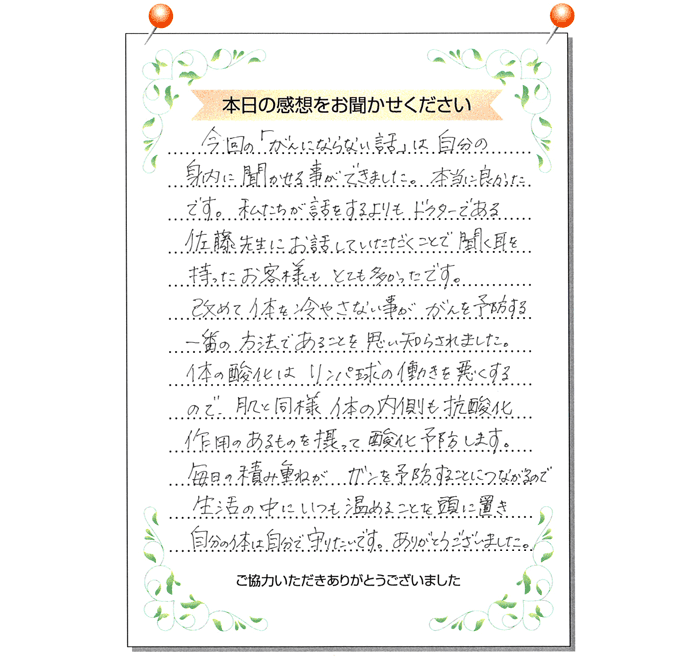 本日の感想をお聞かせください
今回の「がんにならない話」は自分の
身内に聞かせる事ができました。本当に良かった
です。私たちが話をするよりもドクターである
佐藤先生にお話していただくことで聞く耳を
持ったお客様もとても多かったです。
改めて体を冷やさない事ががんを予防する
一番の方法であることを思い知らされました。
体の酸化はリンパ球の働きを悪くする
ので、肌と同様体の内側も抗酸化
作用のあるものを摂って酸化予防します。
毎日の積み重ねがガンを予防することにつながるので
生活の中にいつも温めることを頭に置き
自分の体は自分で守りたいです。ありがとうございました。
ご協力いただきありがとうございました